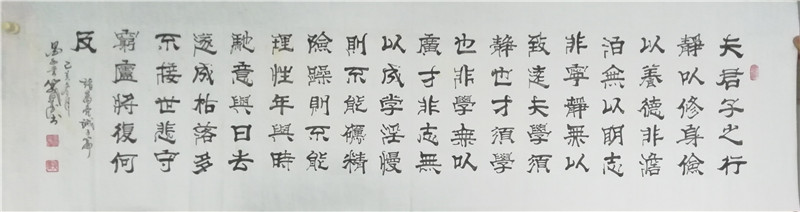 夫君子之行
靜以修身儉
以養德非澹
泊無以明志
非寧靜無以
致遠夫學須
靜也才須學
也非學無以
廣才非志無
以成学淫慢
則不能礪精
險躁則不能
理性年與時
馳意與日去
遂成枯落多
不接世悲守
窮廬將復何
反
諸葛亮誡子篇
己亥